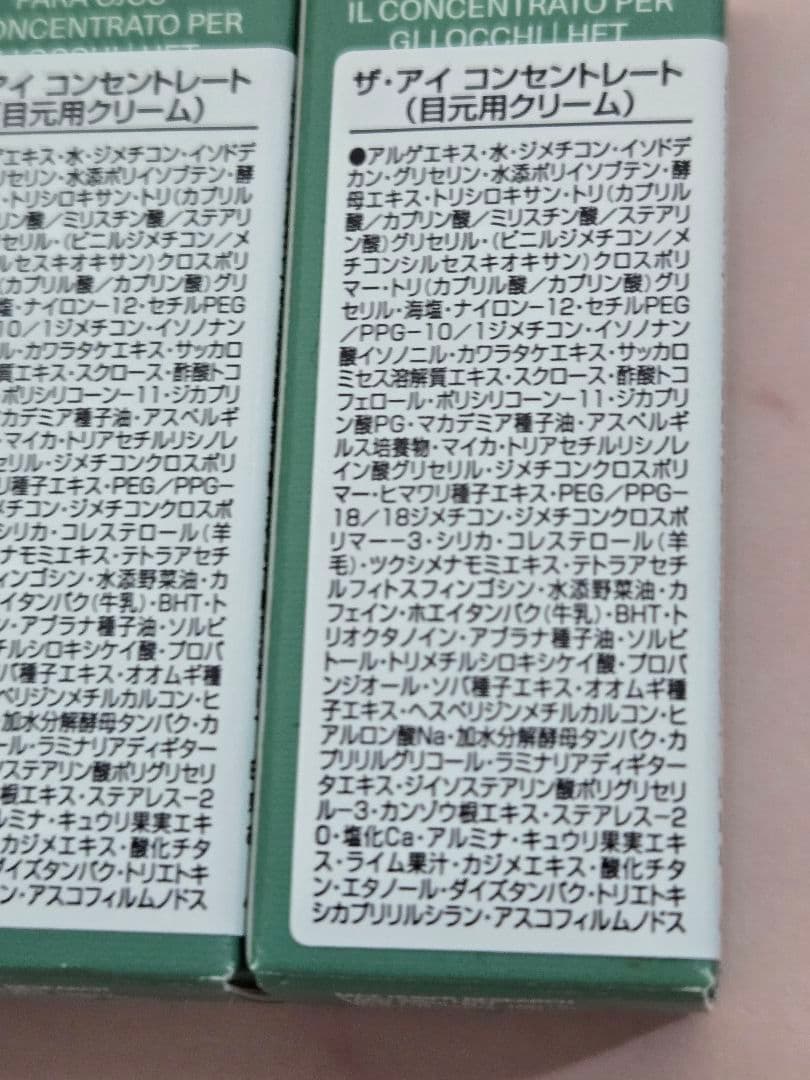 PARA OJOS
CONCENTRATO PER
アイ コンセントレート
(目元用クリーム)
エキス・水・ジメチコン・イソドデ
リセリン・水添ポリイソブテン・酵
・トリシロキサン・トリ(カプリル
リン酸/ミリスチン酸/ステアリ
セリル・(ビニルジメチコン/メ
ルセスキオキサン)クロスポリ
(カプリル酸/カプリン酸)グリ
塩・ナイロン-12・セチルPEG
10/1ジメチコン・イソノナン
ル・カワラタケエキス・サッカロ
質エキス・スクロース・酢酸トコ
ポリシリコーン-11・ジカプリ
カデミア種子油・アスペルギ
・マイカ・トリアセチルリシノレ
セリル・ジメチコンクロスポリ
リ種子エキス・PEG/PPG-
メチコン・ジメチコンクロスポ
シリカ・コレステロール(羊
ナモミエキス・テトラアセチ
ィンゴシン・水添野菜油・カ
イタンパク(牛乳)・BHT・ト
ン・アブラナ種子油・ソルビ
チルシロキシケイ酸・プロパ
バ種子エキス・オオムギ種
ペリジンメチルカルコン・ヒ
加水分解酵母タンパク・カ
ール・ラミナリアディギター
ステアリン酸ポリグリセリ
根エキス・ステアレス-2
ルミナ・キュウリ果実エキ
カジメエキス・酸化チタ
ダイズタンパク・トリエトキ
ン・アスコフィルムノドス
IL CONCENTRATO PER
GLI OCCHI | HET
ザ・アイ コンセントレート
(目元用クリーム)
●アルゲエキス・水・ジメチコン・イソドデ
カン・グリセリン・水添ポリイソブテン・酵
母エキス・トリシロキサン・トリ(カプリル
酸/カプリン酸/ミリスチン酸/ステアリ
ン酸)グリセリル・(ビニルジメチコン/メ
チコンシルセスキオキサン)クロスポリ
マー・トリ(カプリル酸/カプリン酸)グリ
セリル・海塩・ナイロン-12・セチルPEG
/PPG-10/1ジメチコン・イソノナン
酸イソノニル・カワラタケエキス・サッカロ
ミセス溶解質エキス・スクロース・酢酸トコ
フェロール・ポリシリコーン-11・ジカプリ
ン酸PG・マカデミア種子油・アスペルギ
ルス培養物・マイカ・トリアセチルリシノレ
イン酸グリセリル・ジメチコンクロスポリ
マー・ヒマワリ種子エキス・PEG/PPG-
18/18ジメチコン・ジメチコンクロスポ
リマー-3・シリカ・コレステロール(羊
毛)・ツクシメナモミエキス・テトラアセチ
ルフィトスフィンゴシン・水添野菜油・カ
フェイン・ホエイタンパク(牛乳)・BHT・ト
リオクタノイン・アブラナ種子油・ソルビ
トール・トリメチルシロキシケイ酸・プロパ
ンジオール・ソバ種子エキス・オオムギ種
子エキス・ヘスペリジンメチルカルコン・ヒ
アルロン酸Na・加水分解酵母タンパク・カ
プリリルグリコール・ラミナリアディギター
タエキス・ジイソステアリン酸ポリグリセリ
ル-3・カンゾウ根エキス・ステアレス-2
0・塩化Ca・アルミナ・キュウリ果実エキ
ス・ライム果汁・カジメエキス・酸化チタ
ン・エタノール・ダイズタンパク・トリエトキ
シカプリリルシラン・アスコフィルムノドス